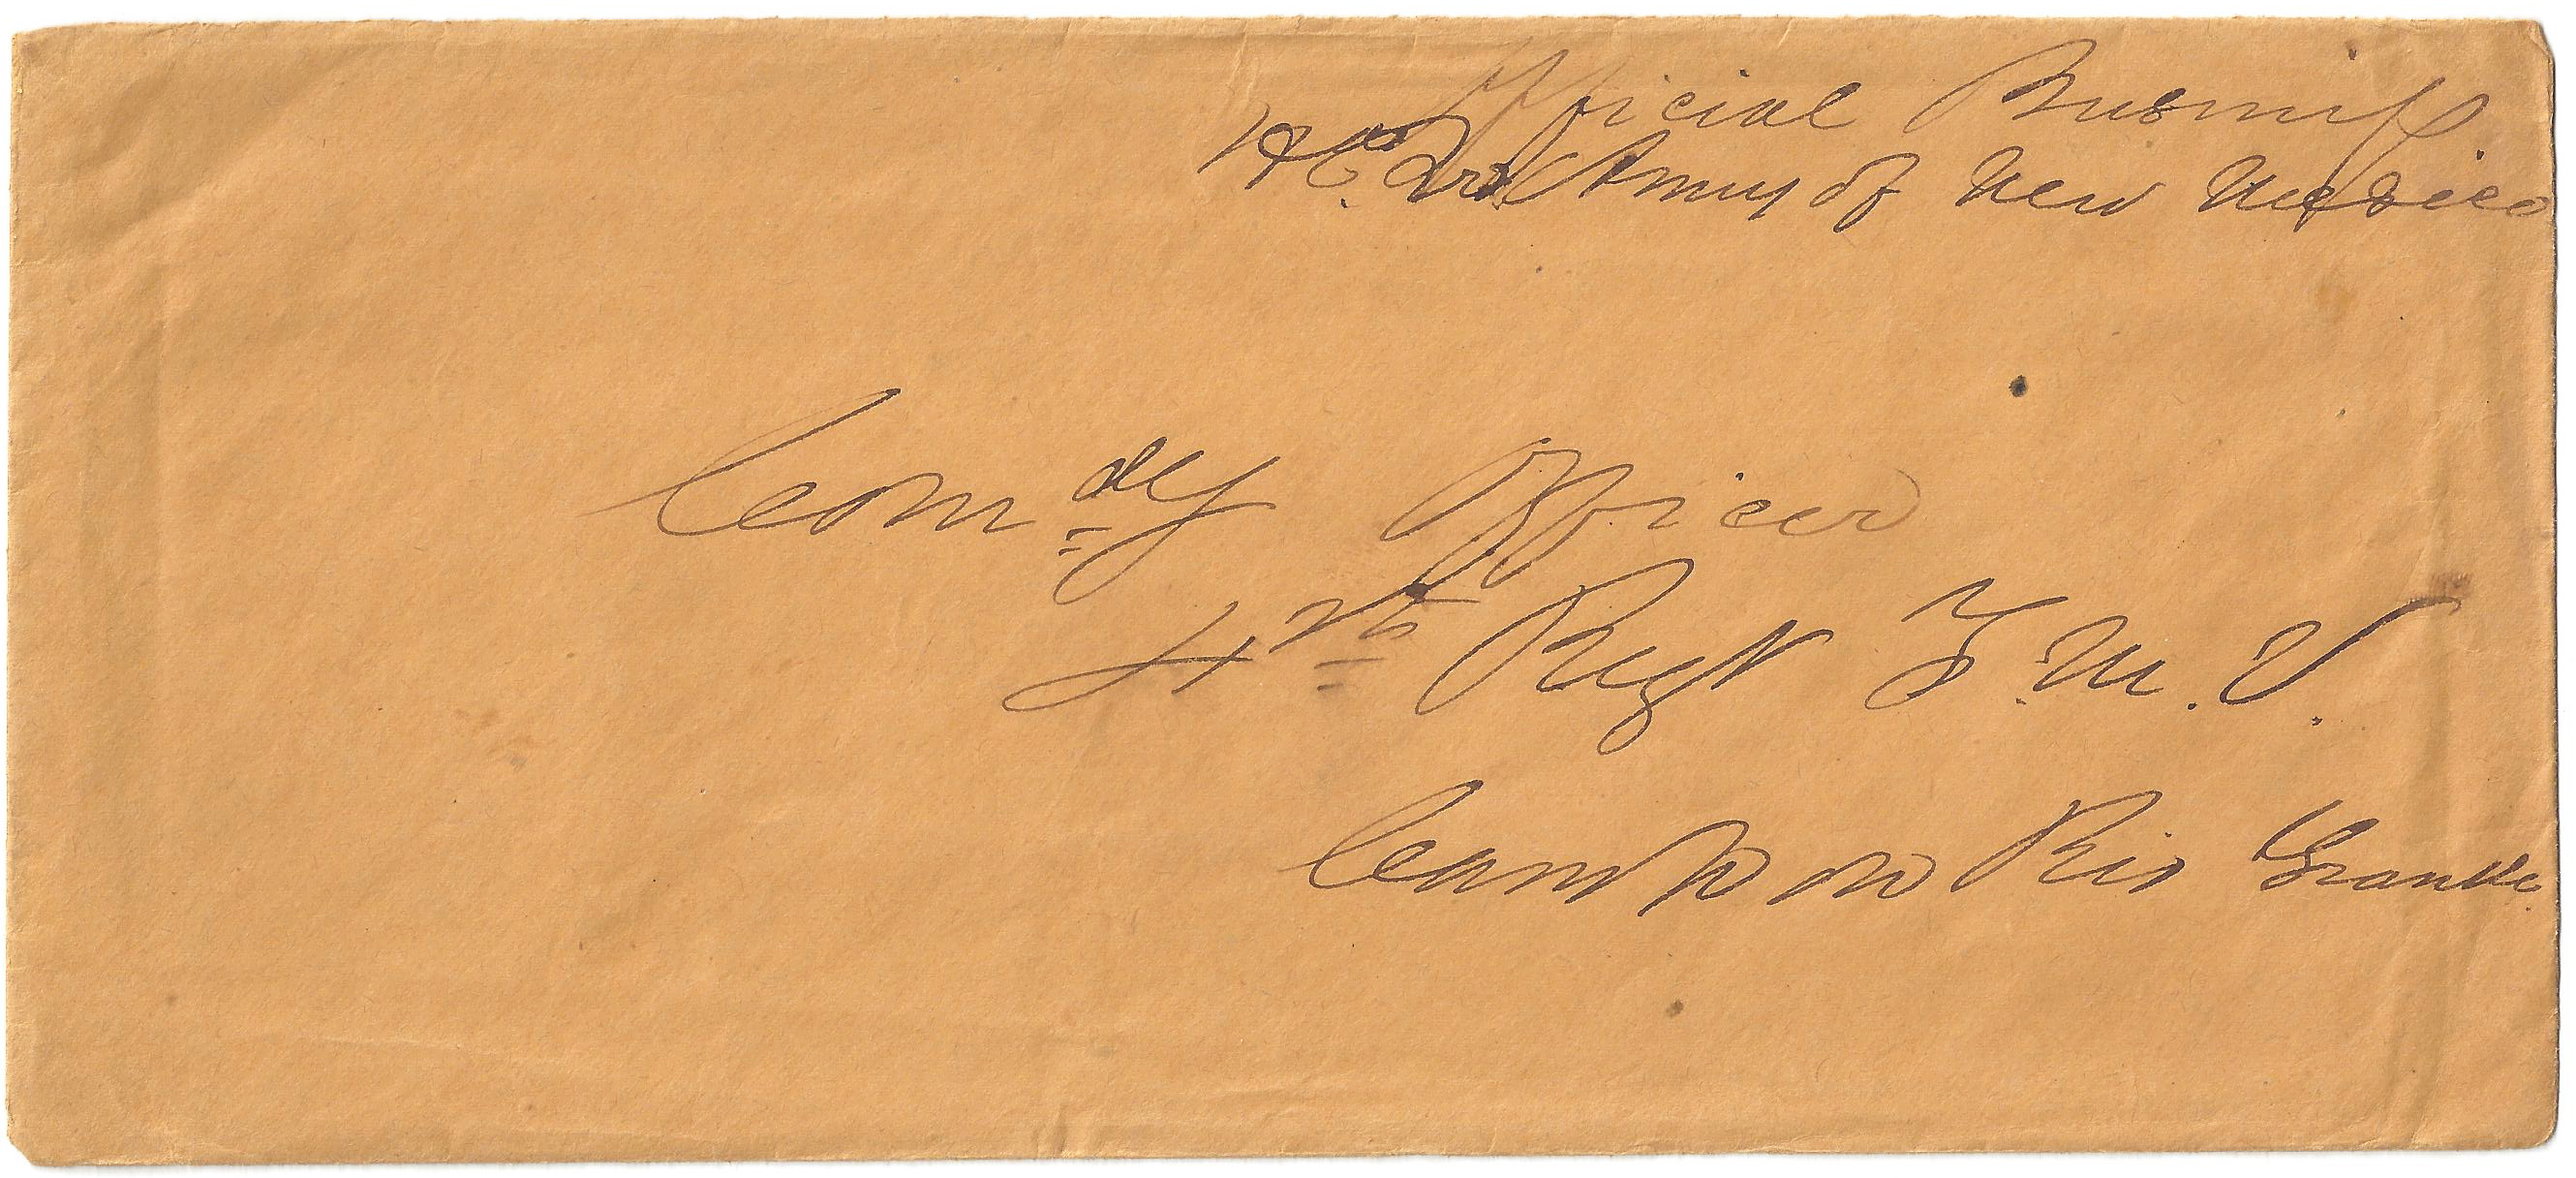 Official Business
Hd Qrs Army of New Mexico
Comdg Officer
4th Regt T. M. V.
Camp on Rio Grande